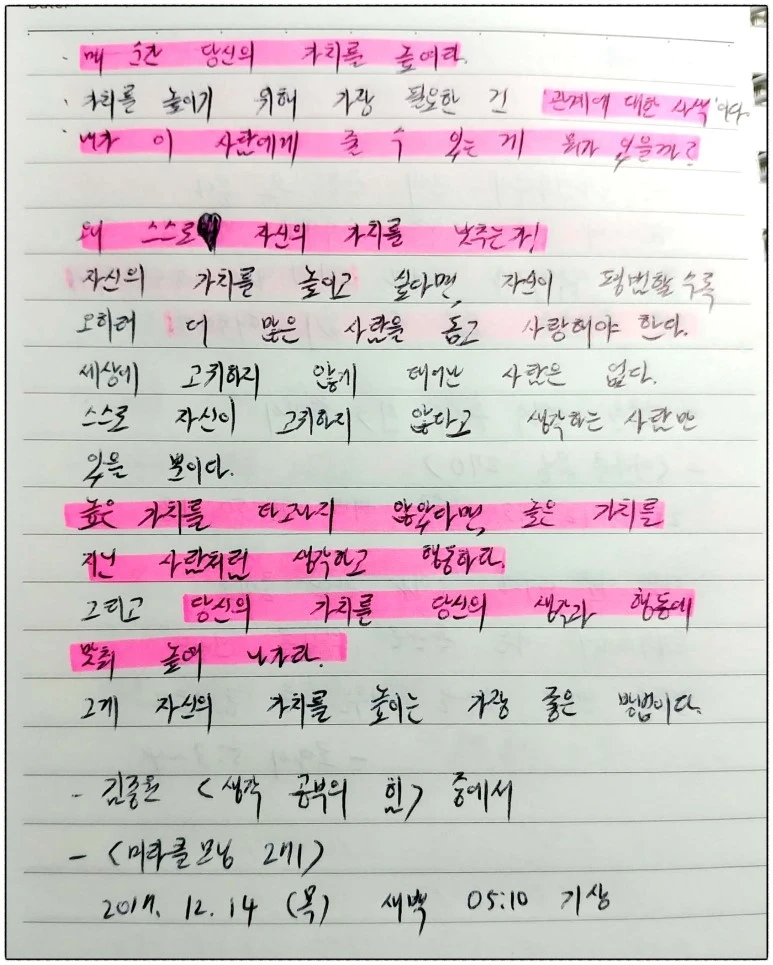 Date.
· 매 순간 당신의 가치를 높여라.
· 가치를 높이기 위해 가장 필요한 건 '관계에 대한 사색'이다.
· 내가 이 사람에게 줄 수 있는 게 뭐가 있을까?
왜 스스로 자신의 가치를 낮추는가!
자신의 가치를 높이고 싶다면, 자신이 평범할수록
오히려 더 많은 사람을 돕고 사랑해야 한다.
세상에 고귀하지 않게 태어난 사람은 없다.
스스로 자신이 고귀하지 않다고 생각하는 사람만
있을 뿐이다.
높은 가치를 타고나지 않았다면, 높은 가치를
지닌 사람처럼 생각하고 행동하라.
그리고 당신의 가치를 당신의 생각과 행동에
맞춰 높여 나가라.
그게 자신의 가치를 높이는 가장 좋은 방법이다.
- 김종원 <생각 공부의 힘> 중에서
- <미라클모닝 2기>
2017. 12. 14 (목) 새벽 05:10 기상